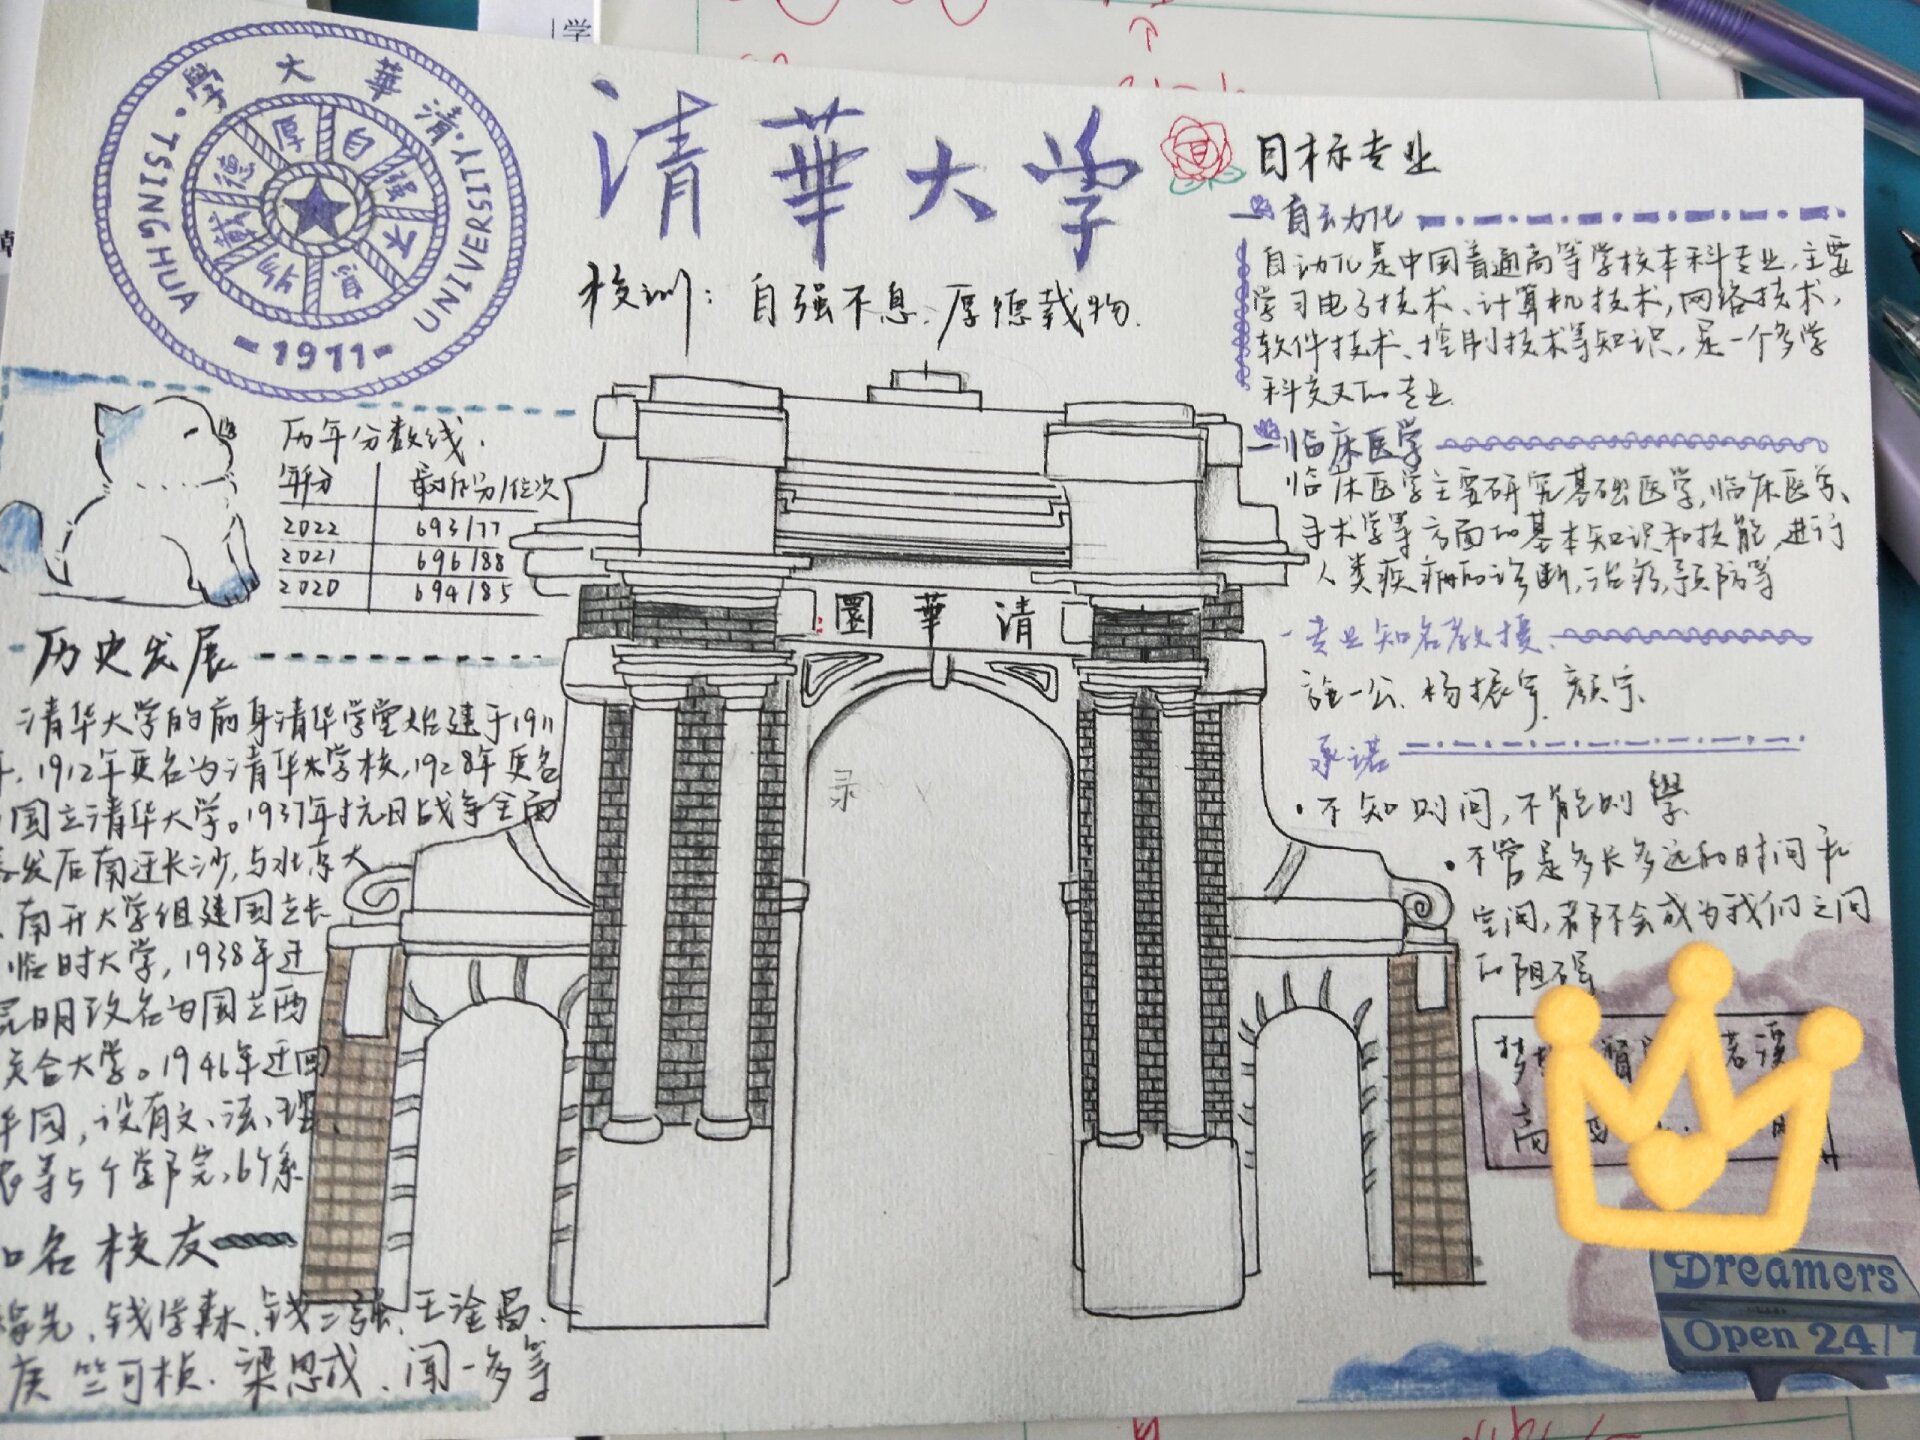 清·華大學·
TSINGHUA UNIVERSITY
自强不息
厚德載物
-1911-
清華大学
校训：自强不息、厚德载物.
历年分数线.
年份 最低分/位次
2022 693/77
2021 696/88
2020 694/85
历史发展
清华大学的前身清华学堂始建于1911
年，1912年更名为清华学校，1928年更名
国立清华大学。1937年抗日战争全面
发后南迁长沙，与北京大
南开大学组建国立长
临时大学，1938年迁
昆明改名为国立西
联合大学。1946年迁回
园，设有文、法、理、
农等5个学院，
名校友
稼先、钱学森、钱三强、王淦昌、
竺可桢、梁思成、闻一多等
園華清
录
目标专业
自动化
自动化是中国普通高等学校本科专业，主要
学习电子技术、计算机技术，网络技术，
软件技术、控制技术等知识，是一个多学
科交叉的专业.
临床医学
临床医学主要研究基础医学，临床医学、
手术学等方面的基本知识和技能，进行
人类疾病的诊断，治疗，预防等
-专业知名教授.
施一公、杨振宁、颜宁
承诺
·不知则问，不能则學
·不管是多长多远的时间和
空间，都不会成为我们之间
的阻碍
Dreamers
Open 24/7